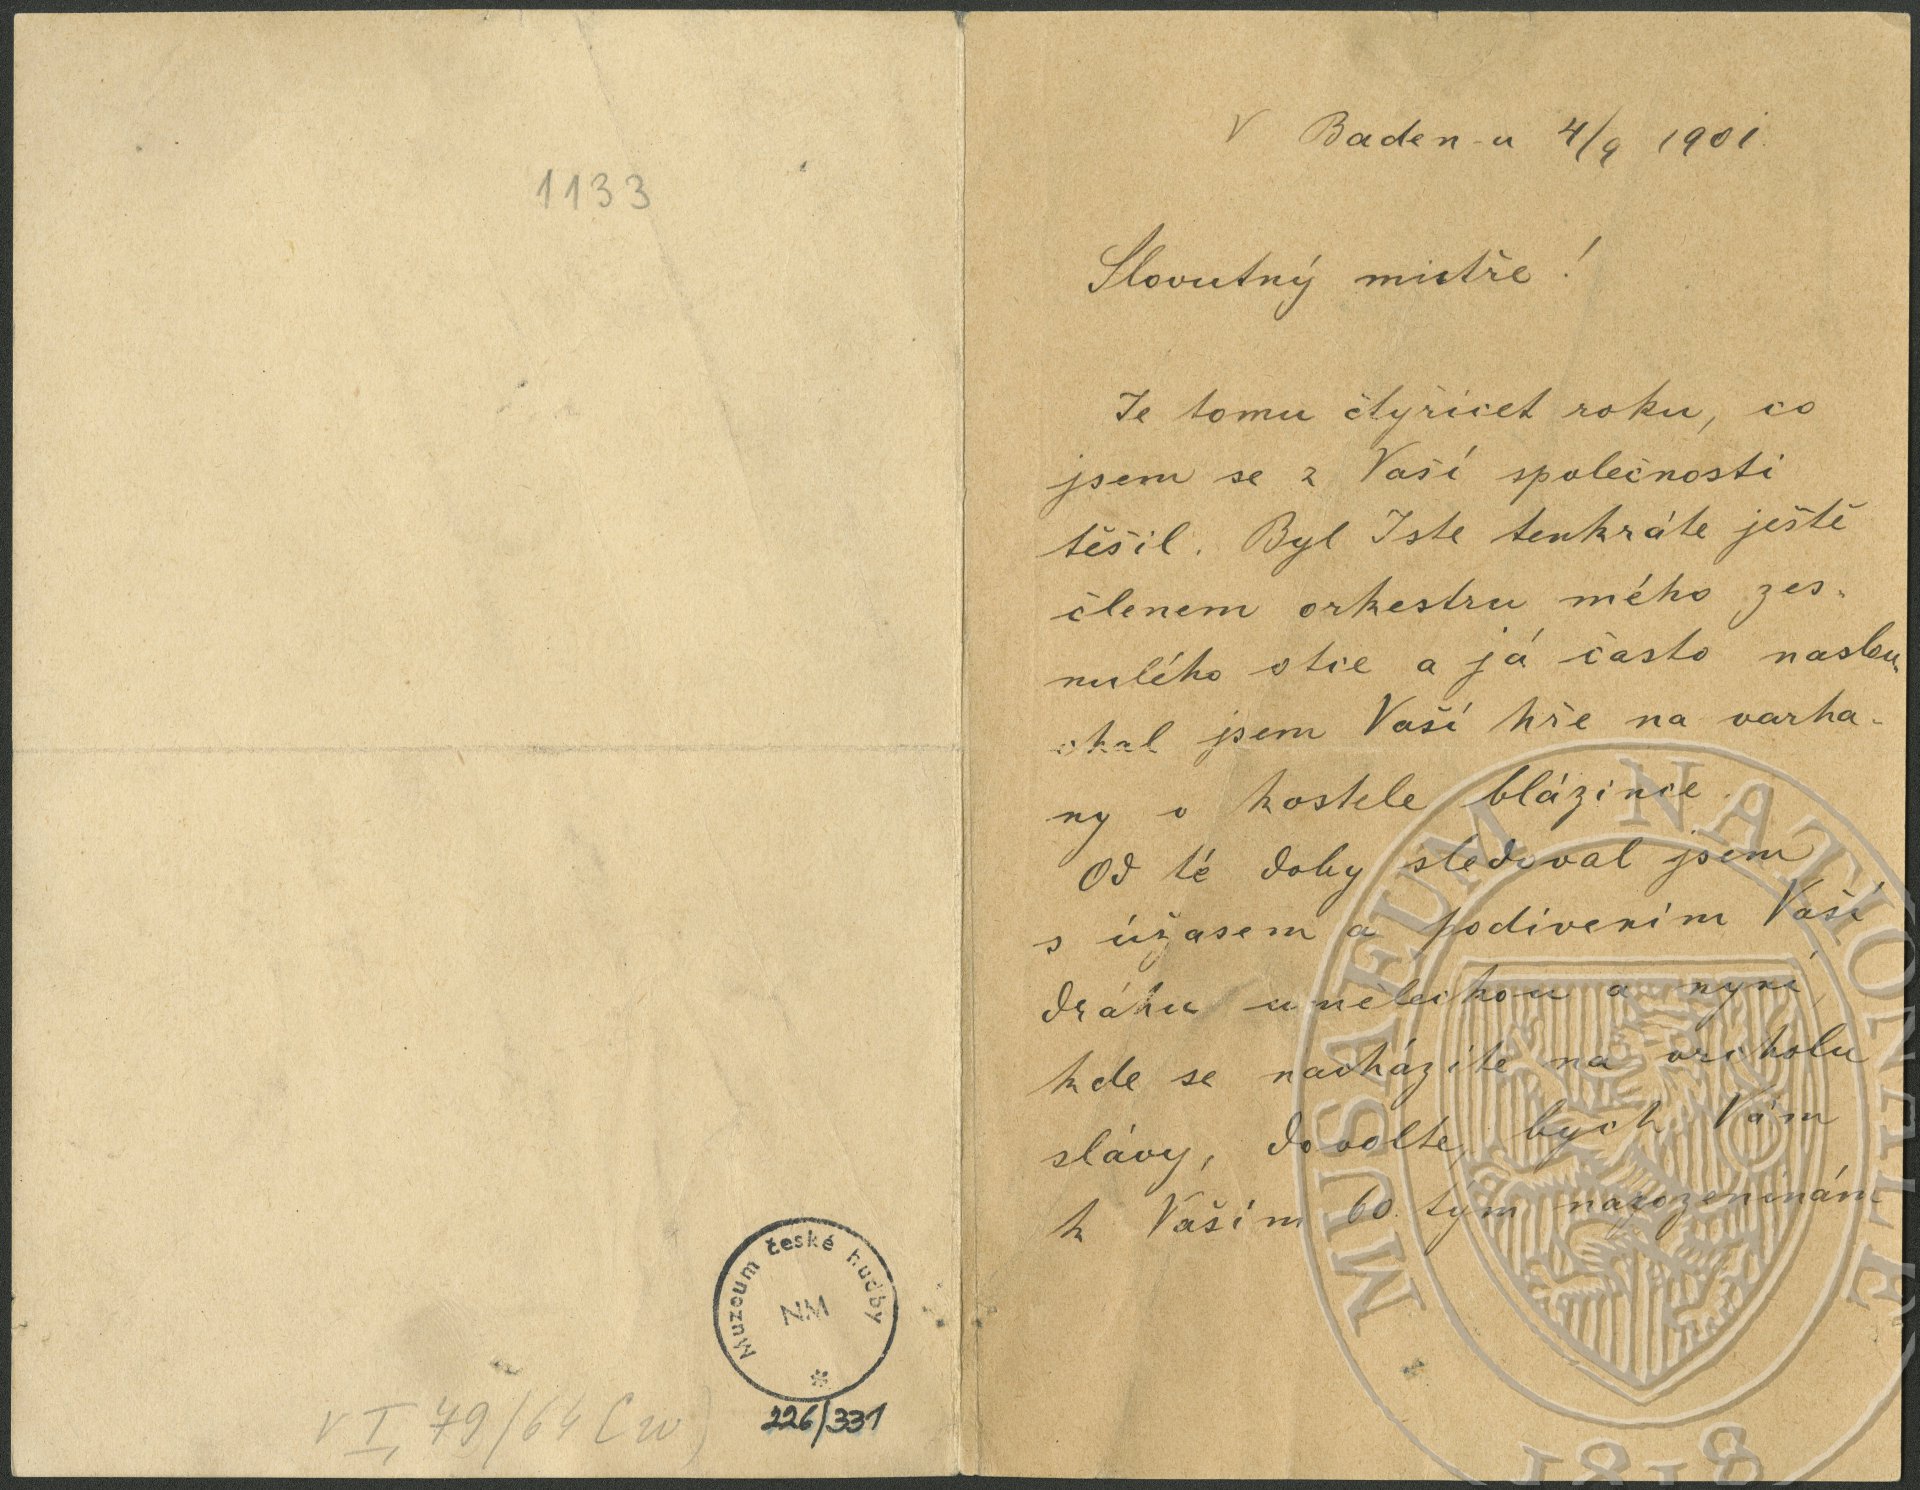 1133
Muzeum české hudby
NM
226/331
V Baden-u 4/9 1901
Slovutný mistře!
Je tomu čtyřicet roku, co
jsem se z Vaší společnosti
těšil. Byl Jste tenkráte ještě
členem orkestru mého zes-
nulého otce a já často naslou-
chal jsem Vaší hře na varha-
ny v kostele blázince.
Od té doby sledoval jsem
s úžasem a podivením Vaší
dráhu uměleckou a nyní,
kde se nacházíte na vrcholu
slávy, dovolte, bych Vám
k Vaším 60 tým narozeninám
MUSAEUM NATIONALE
1818